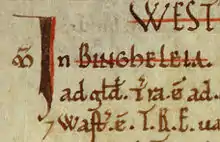 WEST
ᵯ In BINGHELEIA.
ad gld̄. Tra ē ad.
⁊ Waſt̄.ē. T.R.E. ua